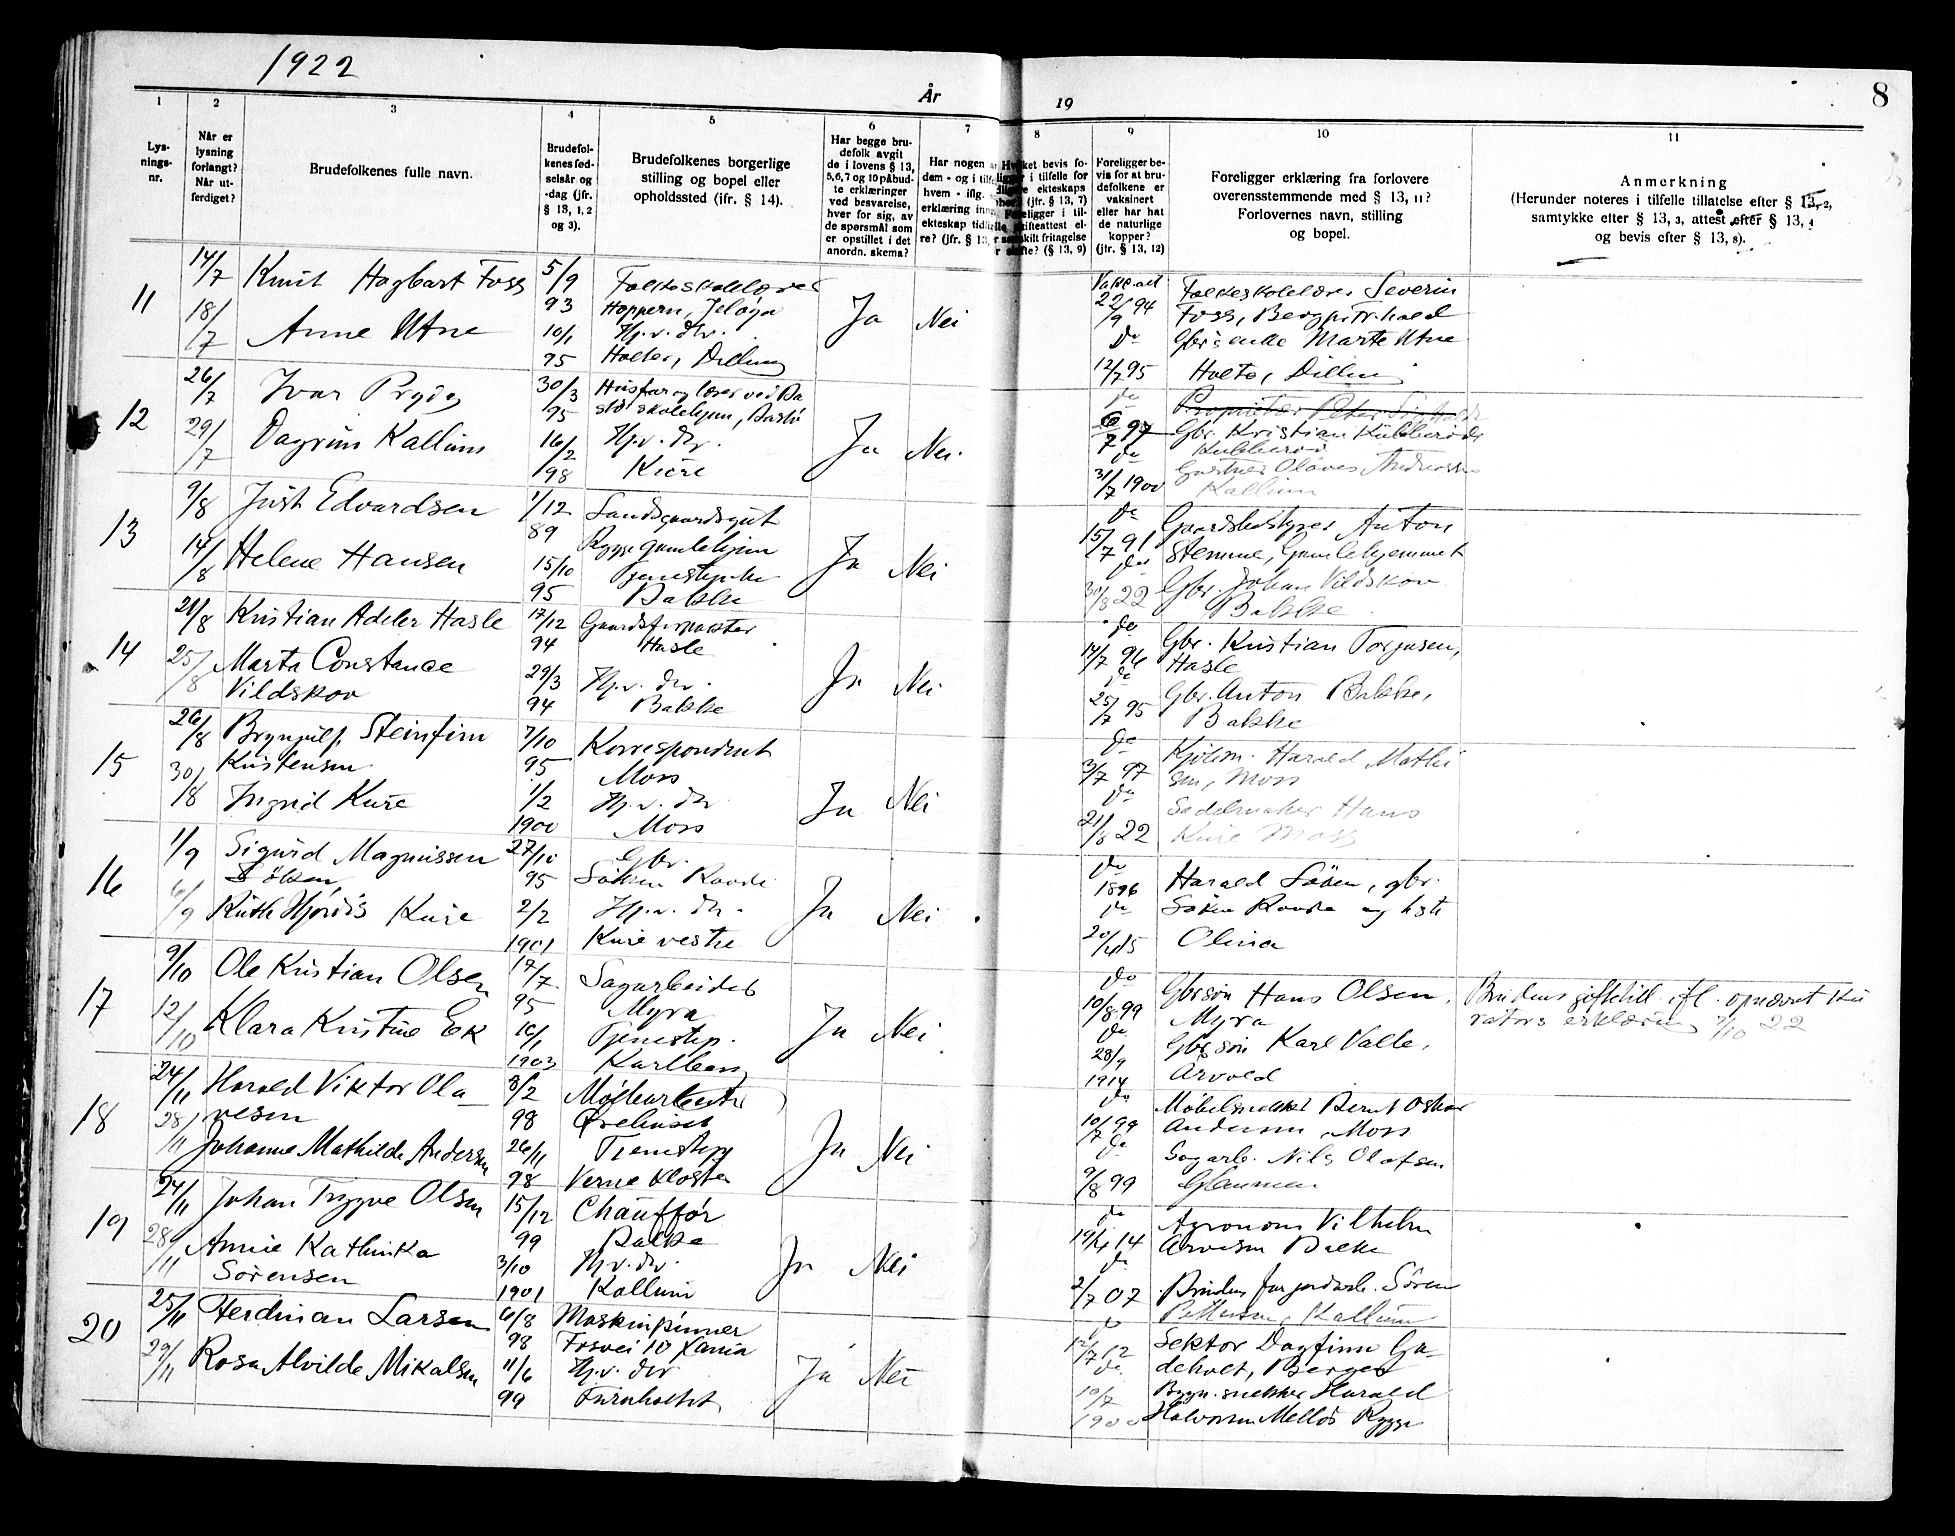 1922
År
19
8
1
2
3
4
5
6
7
8
9
10
11
Lys-
nings-
nr.
Når er
lysning
forlangt?
Når ut-
ferdiget?
Brudefolkenes fulle navn.
Brudefol-
kenes fød-
selsår og
-dag (jfr.
§ 13, 1, 2
og 3).
Brudefolkenes borgerlige
stilling og bopel eller
opholdssted (jfr. § 14).
Har begge bru-
defolk avgit
de i lovens § 13,
5, 6, 7 og 10 påbud-
te erklæringer
ved besvarelse,
hver for sig, av
de spørsmål som
er opstillet i det
anordn. skema?
Har nogen
dem - og i
hvem - iflg.
erklæring
ekteskap
re? (jfr. § 13,
bevis fo-
i tilfelle for
ekteskaps
(jfr. § 13, 7)
i til-
skifteattest el-
fritagelse
(§ 13, 9)
Foreligger be-
vis for at bru-
defolkene er
vaksinert
eller har hat
de naturlige
kopper?
(jfr. § 13, 12)
Foreligger erklæring fra forlovere
overensstemmende med § 13, 11?
Forlovernes navn, stilling
og bopel.
Anmerkning
(Herunder noteres i tilfelle tillatelse efter § 13, 2,
samtykke efter § 13, 3, attest efter § 13, 4
og bevis efter § 13, 8).
11
14/7
Knut Hagbart Foss
5/9
93
Folkeskolelærer
Hoppern, Jeløya
18/7
Anne Utne
10/1
95
Hj.v. dtr.
Holter, Dilling
Ja
Nei
22/9 94
Folkeskolelærer Severin
Foss,
do
Gbr.enke Marte Utne
12/7 95
Holte, Dilling
12
26/7
Ivar
30/3
95
29/7
Dagrun Kallum
16/2
98
Hj.v. dtr.
Kure
Ja
Nei.
do
97
Gbr. Kristian Kubberød
Kubberød
do
31/7 1900
Gartner Olaves
Kallum
13
9/8
Just Edvardsen
1/12
89
Sandsgaardsgut
Rygge gamlehjem
14/8
Helene Hansen
15/10
95
Bakke
Ja
Nei
do
15/7 91
Gaardsbestyrer Anton
Stemme, Gamlehjemmet
do
30/8 22
Gbr. Johan Vildskov
Bakke
14
21/8
Kristian Adeler Hasle
17/12
94
Gaardsforpakter
Hasle
25/8
Marta Constance
Vildskov
29/3
94
Hj.v. dtr.
Bakke
Ja
Nei
do
14/7 96
Gbr. Kristian Torgusen,
Hasle
do
25/7 95
Gbr. Anton Bakke,
Bakke
15
26/8
Brynjulf Steinfinn
Kristensen
7/10
95
Korrespondent
Moss
30/8
Ingrid Kure
1/2
1900
Hj.v. dtr.
Moss
Ja
Nei
do
3/7 97
Kjøbm. Harald Mathi
sen, Moss
do
21/8 22
Sadelmaker Hans
Kure Moss
16
1/9
Sigurd Magnussen
Søken
27/10
95
Gbr.
6/9
Ruth Hjørdis Kure
2/2
1901
Hj.v. dtr.
Kure vestre
Ja
Nei
do
1896
Harald Søken, gbr.
do
Olina
17
9/10
Ole Kristian Olsen
17/7
95
Sagarbeider
Myra
12/10
Klara Kristine Ek
10/1
1903
Tjenestep.
Ja
Nei
do
10/8 99
Gbrsøn Hans Olsen,
Myra
do
28/9
1914
Gbrsøn Karl Valle,
Årvold
Brudens giftetill. ifl. opnævnt ku
rators erklæring 7/10 22
18
24/11
Harald Viktor Ola-
vesen
8/2
98
28/11
Johanne Mathilde Andersen
26/11
98
Tjenestep
Verne Kloster
Ja
Nei
do
10/7 99
Møbelsnekker Bernt Oskar
Andersen, Moss
do
9/8 99
Sagarb. Nils Olafsen
19
24/11
Johan Trygve Olsen
15/12
99
Chauffør
28/11
Annie Kathinka
Sørensen
3/10
1901
Hj.v. dtr.
Kallum
Ja
Nei
do
19/4 14
Agronom Vilhelm
do
2/7 07
Brudens far jordarb. Søren
Pettersen, Kallum
20
25/11
Herdman Larsen
6/8
98
Maskinpinner
Fosvei 10
29/11
Rosa Alvilde Mikalsen
11/6
99
Hj.v. dtr
Furuholtet
Ja
Nei
do
12/7 12
Sektor Dagfinn Ga-
deholt, Berger
do
10/7
1900
Bygn.snekker Harald
Halvorsen Melløs Rygge